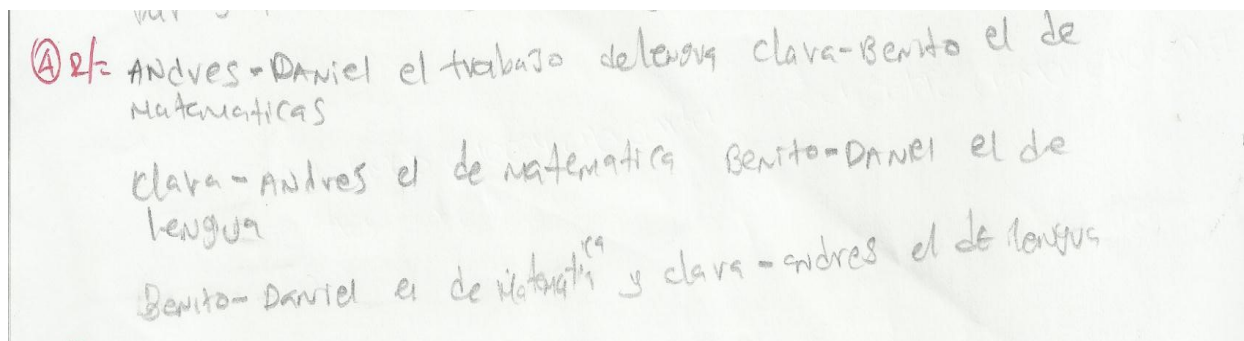 Ⓐ R/= ANdres-DANiel el trabajo delengua clara-Benito el de
Matematicas
clara-ANdres el de matematica Benito-DANel el de
lengua
Benito-Daniel el de Matematica y clara-andres el de lengua